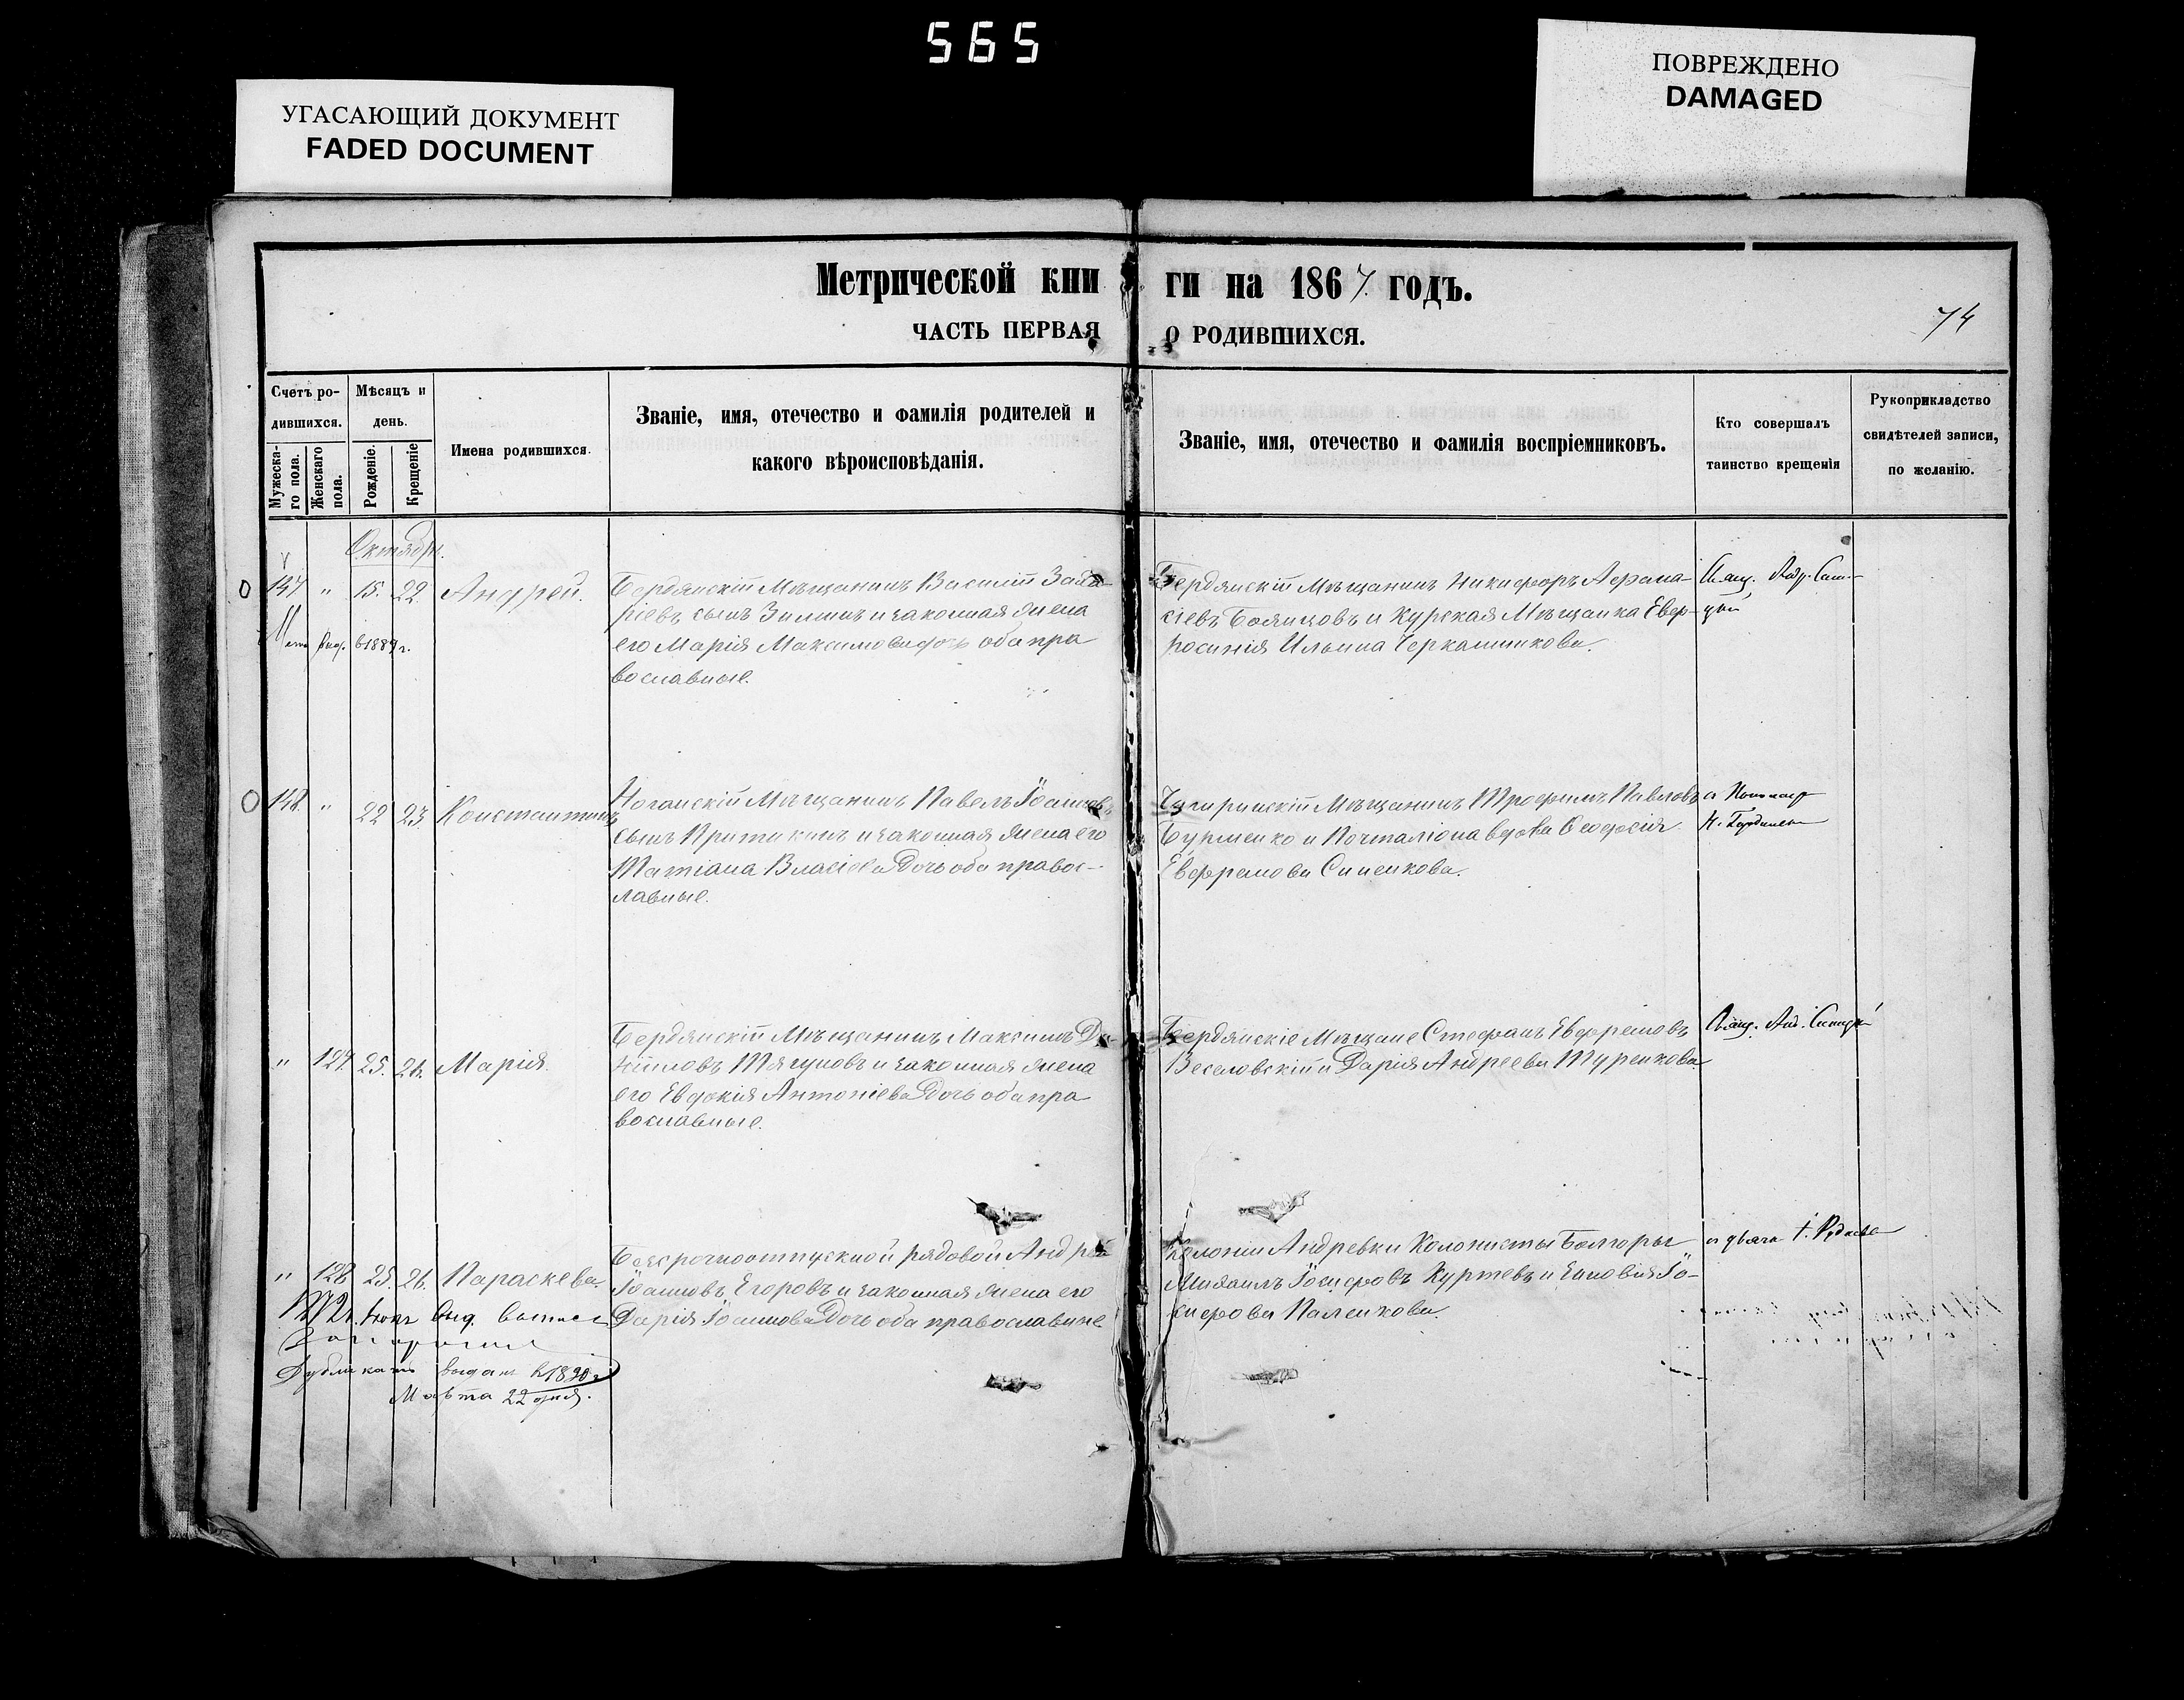 565
УГАСАЮЩИЙ ДОКУМЕНТ
FADED DOCUMENT
ПОВРЕЖДЕНО
DAMAGED
Метрической кни ги на 1867 годъ.
ЧАСТЬ ПЕРВАЯ О РОДИВШИХСЯ.
74
Счетъ ро-
дившихся.
Мужеска-
го пола.
Женскаго
пола.
Мѣсяцъ и
день.
Рожденіе.
Крещеніе
Имена родившихся.
Званіе, имя, отечество и фамилія родителей и
какого вѣроисповѣданія.
Званіе, имя, отечество и фамилія воспріемниковъ.
Кто совершалъ
таинство крещенія
Рукоприкладство
свидѣтелей записи,
по желанію.
Октябрь.
147 " 15. 22. Андрей.
выд. в 1889 г.
Бердянскій Мѣщанинъ Василій
ріевъ сынъ Зиминъ и законная жена
его Марія Максимова дочь оба пра
вославные.
Бердянскій Мѣщанинъ Никифоръ Афана-
сіевъ и Курская Мѣщанка Евф-
росинія Ильина Черкашикова.
148. " 22 23. Константинъ
Ногайскій Мѣщанинъ Павелъ Іоанновъ
сынъ Притыкинъ и законная жена его
Татіана Власіева дочь оба правос-
лавные.
Чигиринскій Мѣщанинъ Трофимъ Павловъ
Бурменко и Почталіона вдова Феодосія
Евфремова Синенкова.
" 127. 25. 26. Марія.
Бердянскій Мѣщанинъ Максимъ Да-
ніиловъ Тягуновъ и законная жена
его Евдокія Антоніева дочь оба пра
вославные.
Бердянскіе Мѣщане Стефанъ Евфремовъ
Веселовскій и Дарія Андреева Туренкова
" 128 25. 26. Параскева.
Безсрочноотпускной рядовой Андрей
Іоанновъ Егоровъ и законная жена его
Дарія Іоаннова дочь оба православные
Колоніи Андревки Колонисты Болгоры
Михаилъ Іосифовъ Куртевъ и Зиновія Іо-
сифова Паленкова.
выд.
Дубликатъ выданъ в 1890 г
Марта 22 дня.